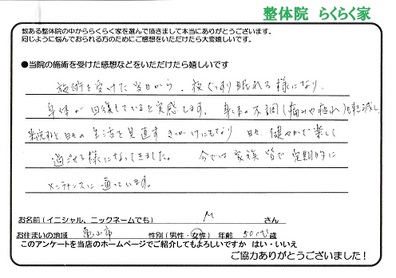 整体院 らくらく家
数ある整体院の中かららくらく家を選んで頂きまして本当にありがとうございます。
同じように悩んでおられる方のためにご感想をいただけたら大変嬉しいです。
●当院の施術を受けた感想などをいただけたら嬉しいです
施術を受けた当日から、夜ぐっすり眠れる様になり、
身体が回復していると実感します。身体の不調(痛みや疲れ)も軽減し
日々の生活を見直すきっかけにもなり 日々 健やかで楽しく
過せる様になってきました。今では家族皆で定期的に
メンテナンスに通っています。
お名前(イニシャル、ニックネームでも) M さん
お住まいの地域 亀山市 性別(男性・女性) 年齢 50代 歳
このアンケートを当店のホームページでご紹介してもよろしいですか はい・いいえ
ご協力ありがとうございました!